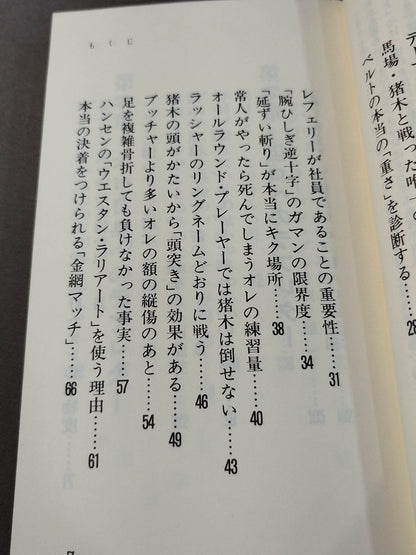 馬場・猪木と戦った唯一の
ベルトの本当の「重さ」を診断する……28
レフェリーが社員であることの重要性……31
「腕ひしぎ逆十字」のガマンの限界度……34
「延ずい斬り」が本当にキク場所……38
常人がやったら死んでしまうオレの練習量……40
オールラウンド・プレーヤーでは猪木は倒せない……43
ラッシャーのリングネームどおりに戦う……46
猪木の頭がかたいから「頭突き」の効果がある……49
ブッチャーより多いオレの額の縦傷のあと……54
足を複雑骨折しても負けなかった事実……57
ハンセンの「ウエスタン・ラリアート」を使う理由……61
本当の決着をつけられる「金網マッチ」……66
もくじ
7